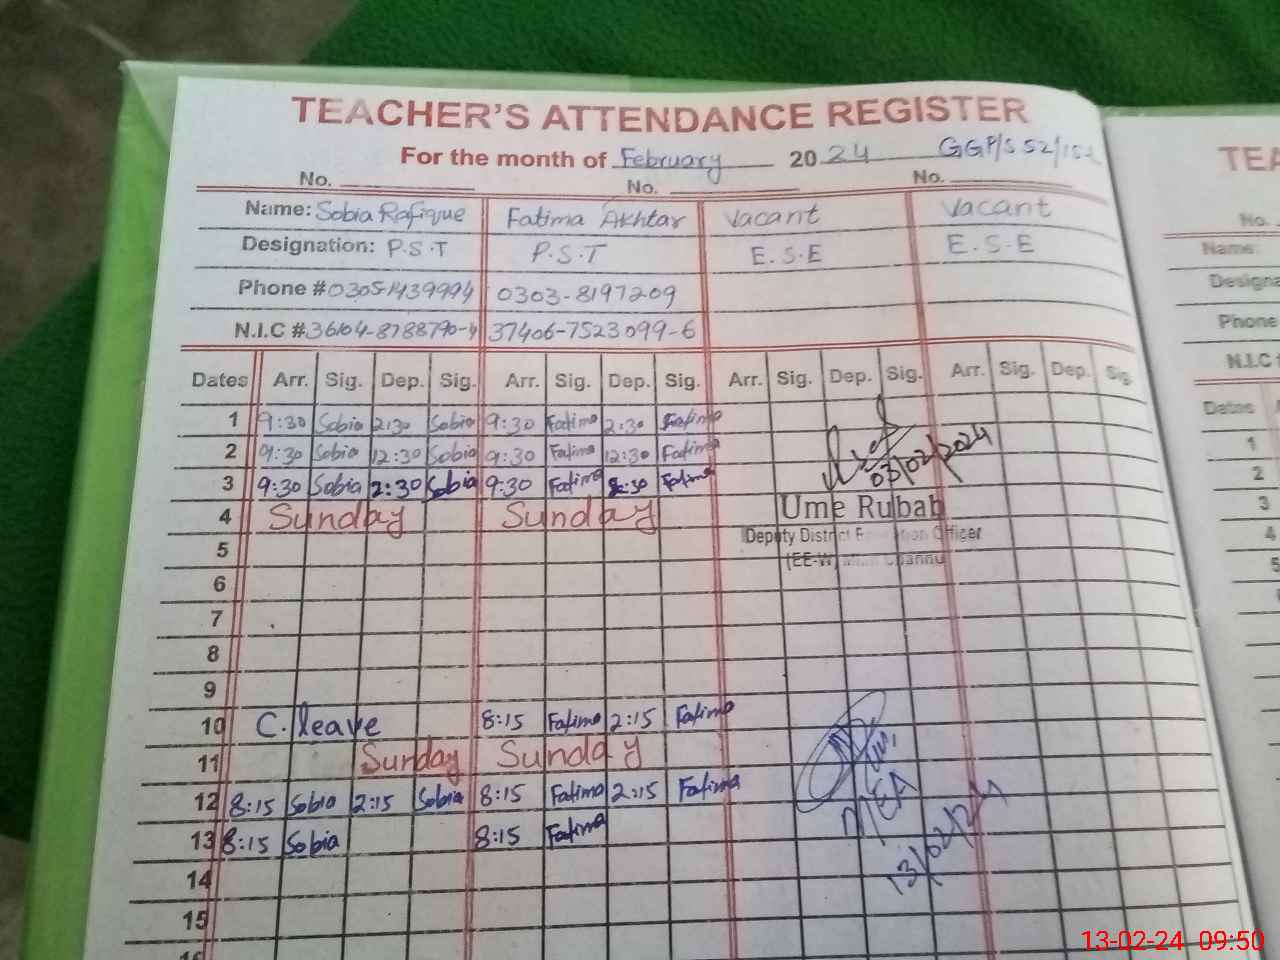 TEACHER'S ATTENDANCE REGISTER
For the month of February 2024 GGP/S 52/15L
No. No. No.
Name: Sobia Rafique Fatima Akhtar Vacant Vacant
Designation: P.S.T P.S.T E.S.E E.S.E
Phone # 0305-1439994 0303-8197209
N.I.C # 36104-8788790-4 37406-7523099-6
Dates Arr. Sig. Dep. Sig. Arr. Sig. Dep. Sig. Arr. Sig. Dep. Sig. Arr. Sig. Dep. Sig.
1 9:30 Sobia 2:30 Sobia 9:30 Fatima 2:30 Fatima
2 9:30 Sobia 12:30 Sobia 9:30 Fatima 12:30 Fatima
3 9:30 Sobia 2:30 Sobia 9:30 Fatima 2:30 Fatima
03/02/2024
4 Sunday Sunday
Ume Rubab
Deputy District Officer
(EE-W) Channu
5
6
7
8
9
10 C.leave 8:15 Fatima 2:15 Fatima
11 Sunday Sunday
12 8:15 Sobia 2:15 Sobia 8:15 Fatima 2:15 Fatima
MEA
13/02/24
13 8:15 Sobia 8:15 Fatima
14
15
16
TEA
No.
Name:
Designa
Phone
N.I.C
Dates
1
2
3
4
5
13-02-24 09:50